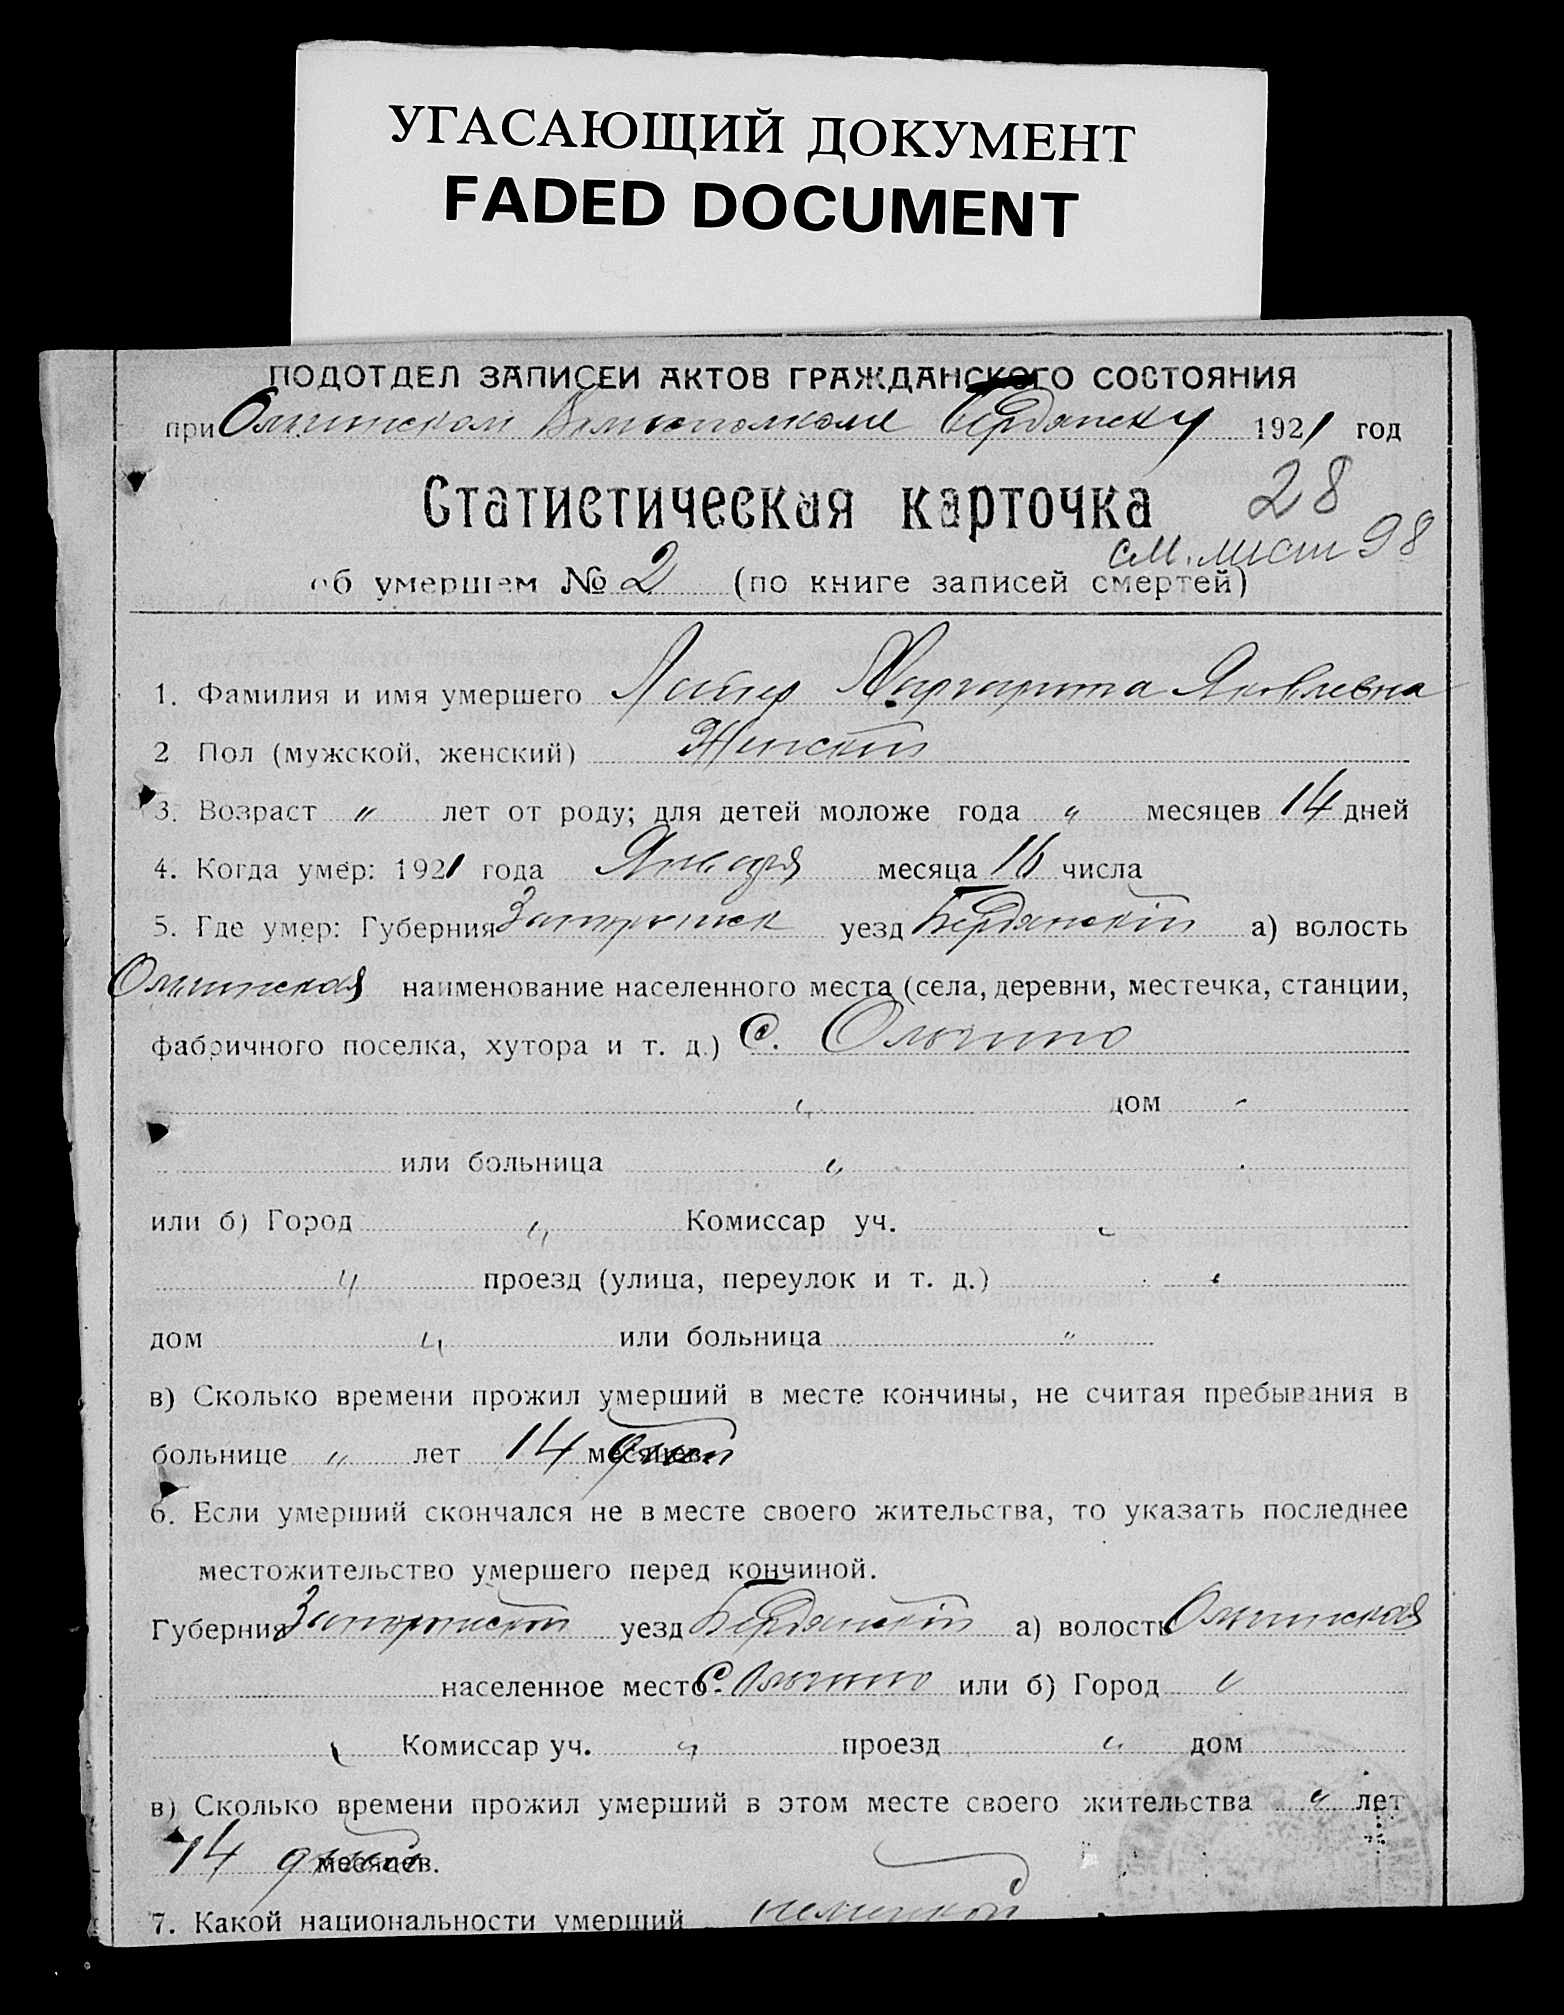 УГАСАЮЩИЙ ДОКУМЕНТ
FADED DOCUMENT
ПОДОТДЕЛ ЗАПИСЕЙ АКТОВ ГРАЖДАНСКОГО СОСТОЯНИЯ
при Ольгинском Волисполкоме Бердянску 1921 год
Статистическая карточка 28
см. лист 98
об умершем № 2 (по книге записей смертей)
1. Фамилия и имя умершего Маргарита Яковлевна
2 Пол (мужской, женский) Женский
3. Возраст " лет от роду; для детей моложе года " месяцев 14 дней
4. Когда умер: 1921 года Января месяца 16 числа
5. Где умер: Губерния Запорожск уезд Бердянскій а) волость
Ольгинская наименование населенного места (села, деревни, местечка, станции,
фабричного поселка, хутора и т. д.) С. Ольгино
" дом "
или больница "
или б) Город " Комиссар уч. "
" проезд (улица, переулок и т. д.) "
дом " или больница "
в) Сколько времени прожил умерший в месте кончины, не считая пребывания в
больнице " лет 14 месяцев дней
6. Если умерший скончался не в месте своего жительства, то указать последнее
местожительство умершего перед кончиной.
Губерния Запорожской уезд Бердянскій а) волость Ольгинская
населенное место С. Ольгино или б) Город "
" Комиссар уч. " проезд " дом
в) Сколько времени прожил умерший в этом месте своего жительства " лет
14 дней месяцев.
7. Какой национальности умерший немецкой